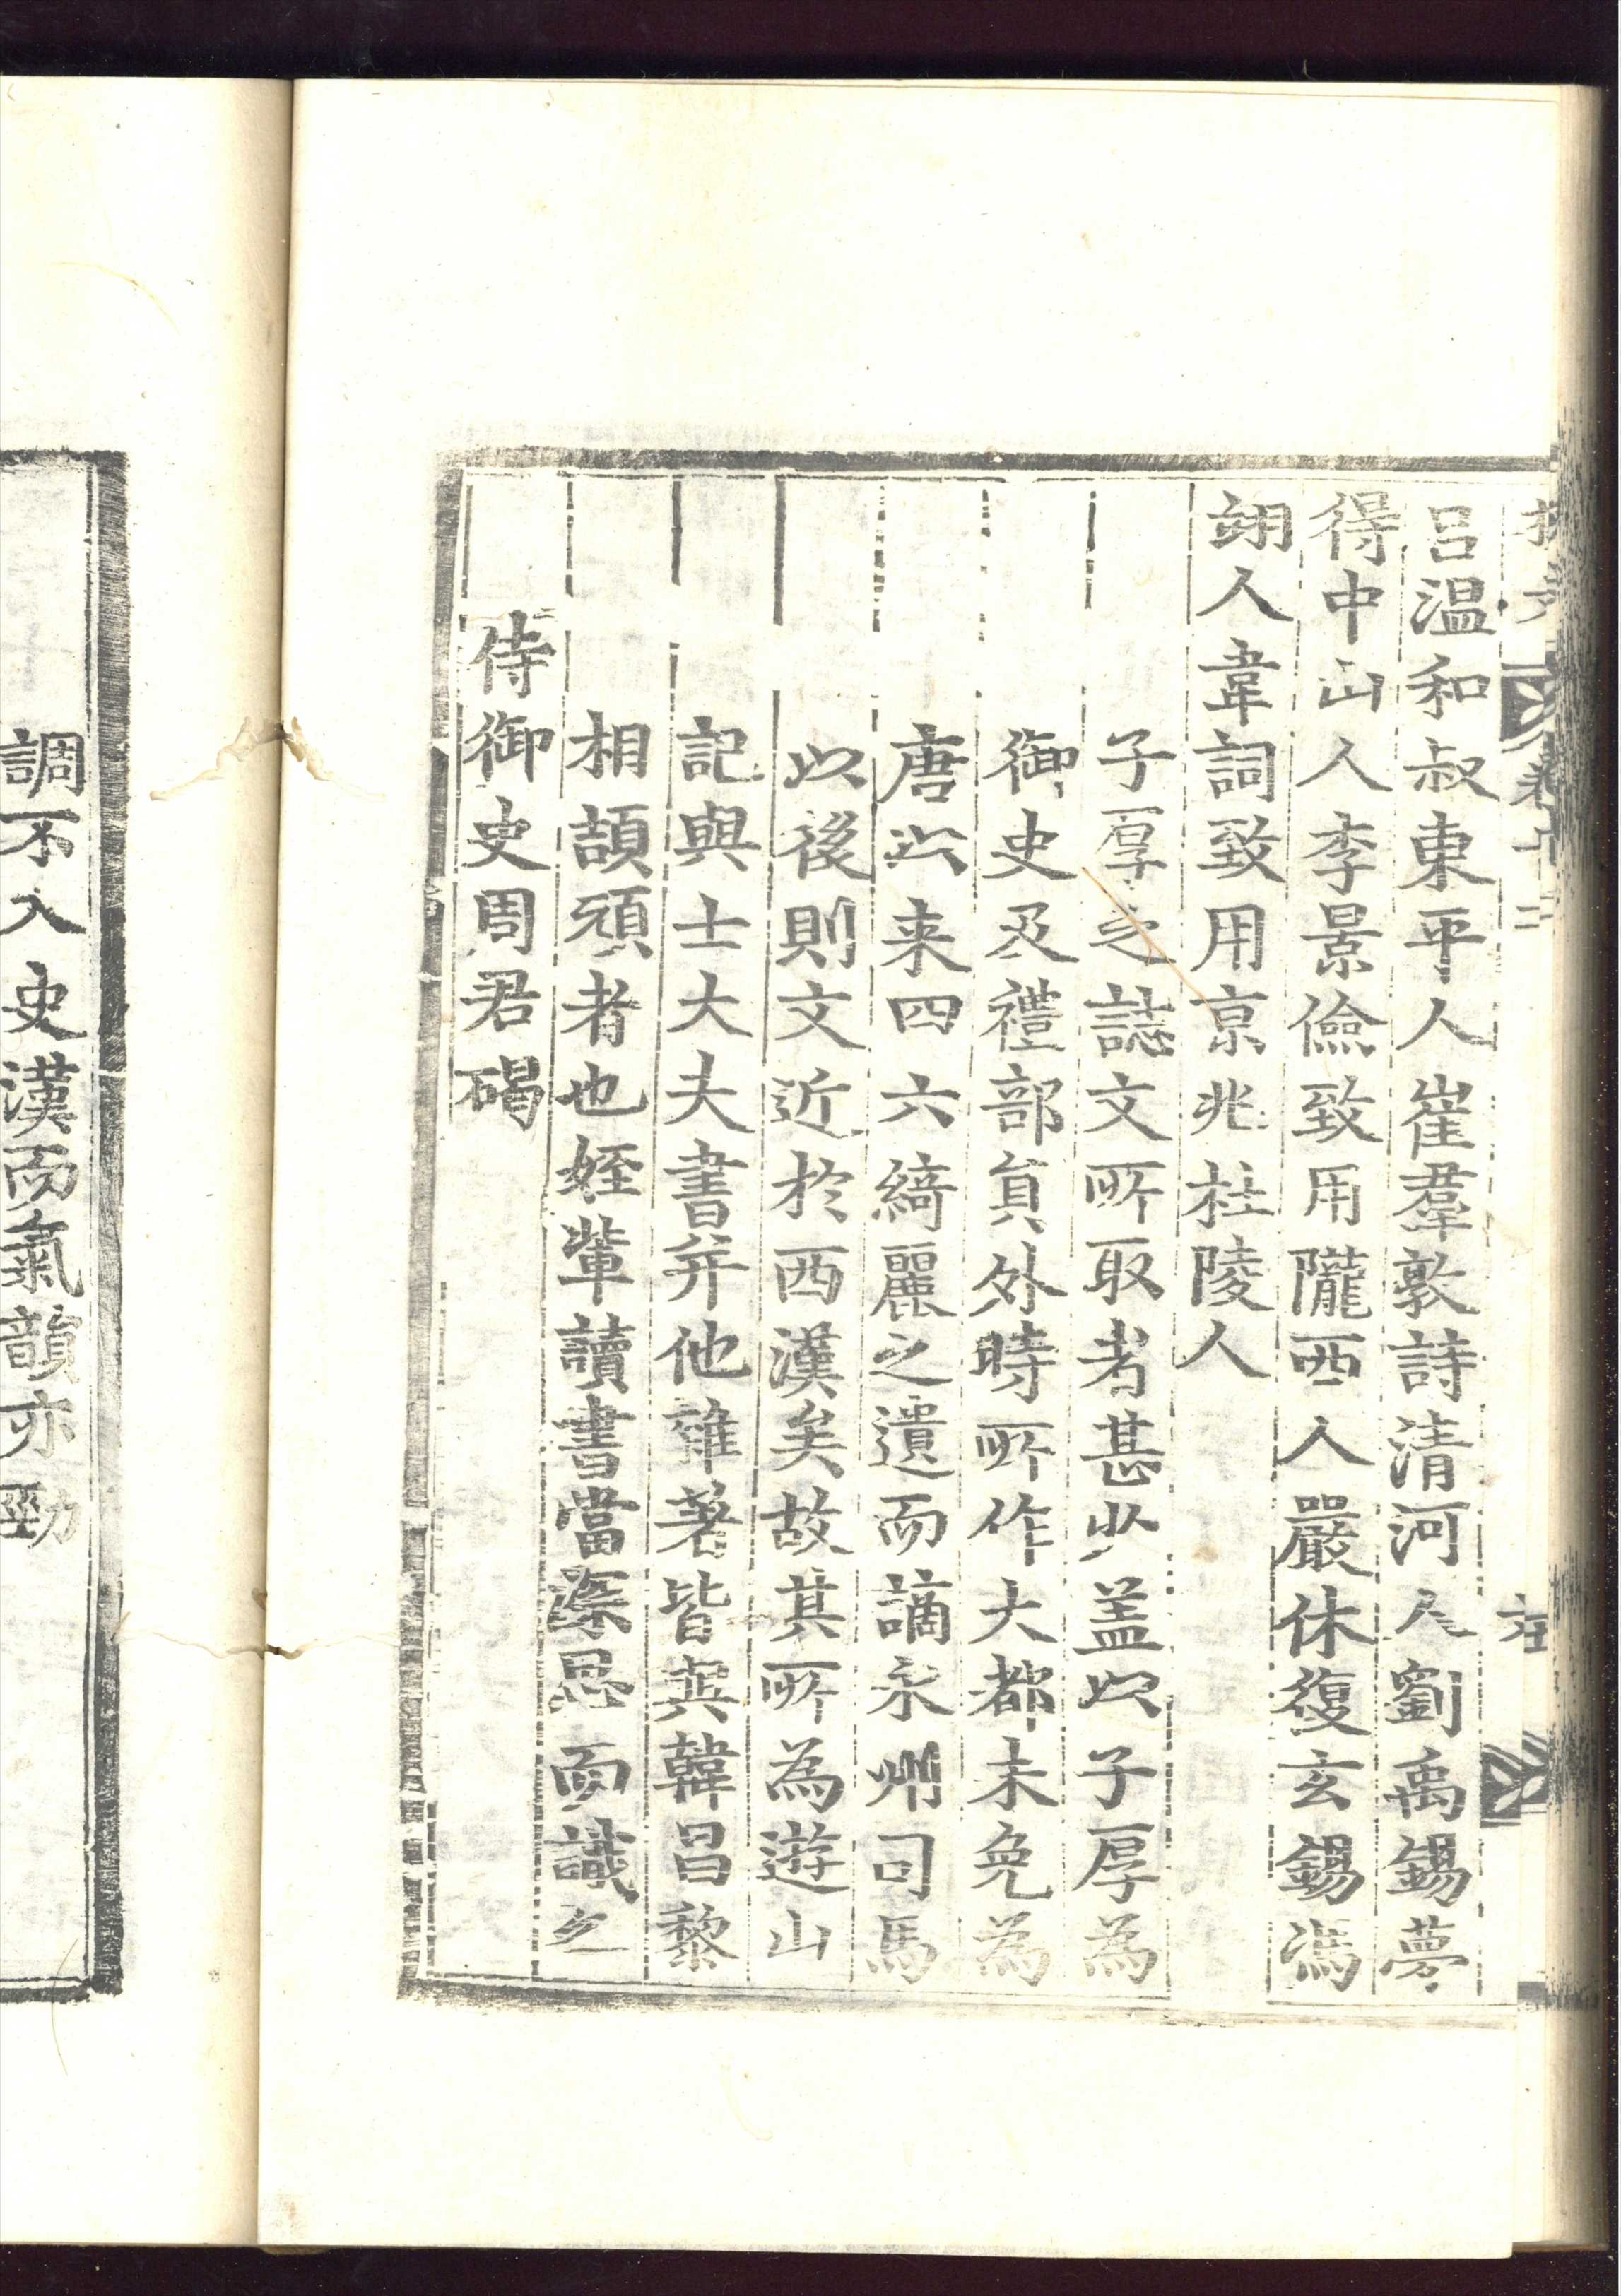 呂温和叔東平人崔羣敦詩清河人劉禹錫夢
得中山人李景儉致用隴西人嚴休復玄錫馮
翊人韋詞致用京兆杜陵人
子厚之誌文所取者甚少盖以子厚為
御史及禮部貟外時所作大都未免為
唐以来四六綺麗之遺而謫永州司馬
以後則文近於西漢矣故其所為遊山
記與士大夫書并他雜著皆與韓昌黎
相頡頏者也姪輩讀書當深思而識之
侍御史周君碣
調不入史漢而氣韻亦勁